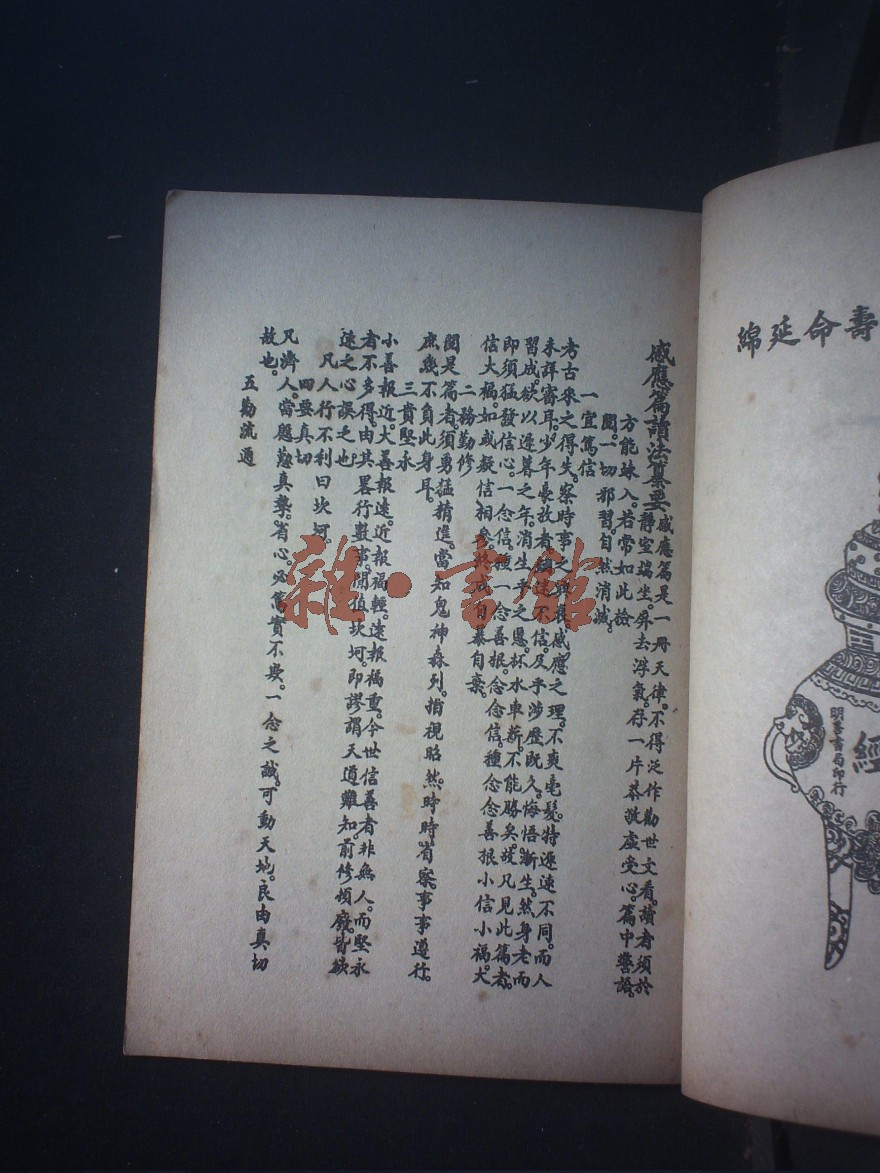 壽命延綿
經
明善書局印行
感應篇讀法纂要
感應篇是一冊天律。不得泛作勸世文看。讀者須於
靜室端坐。屏去浮氣。存一片恭敬虛受心。篇中警語。
方能竦入。若常如此檢
閱。一切邪習自然消滅。
一宜篤信
考古來之得失。察時事之興衰。感應之理。不爽毫髮。特遲速不同。而人
未詳審耳。少年豪放者。類迷不信。及乎涉歷既久。悔悟漸生。然身老而
習成。欲以遲暮之年。消生平之愆。杯水車薪。不能勝矣。故凡見此篇者。
即須猛發信心。一念信。種一念善根。念念信。種念念善根。小信小福。大
信大福。如或疑信相參。終成自暴自棄。
二務勤修
閱是篇者。須勇猛精進。當知鬼神森列。指視昭然。時時省察。事事遵行。
庶幾不負此身耳。
三貴堅永
小善報近。大善報遠。近報福輕。遠報福重。今世信善者非無人。而堅永
者不多得。由其畧行數事。間值坎坷。即謬謂天道難知。前修頓廢。皆欲
速之心誤之也。
凡人行不利曰坎坷。
四要真切
凡濟人。當慇懃真摯。省心。必篤實不欺。一念之誠。可動天地。良由真切
故也。
五勸流通
雜·書館